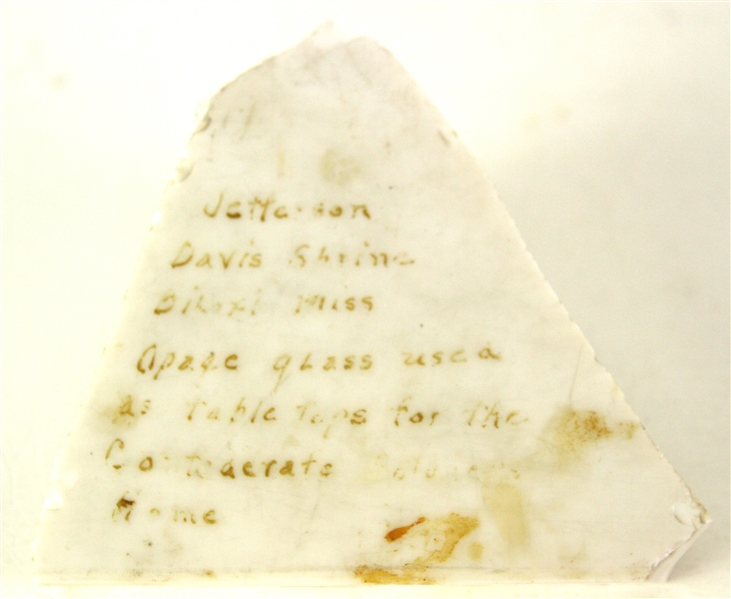 Jefferson
Davis Shrine
Biloxi Miss
Opaqe glass used
as table tops for the
Confederate Soldiers
Home